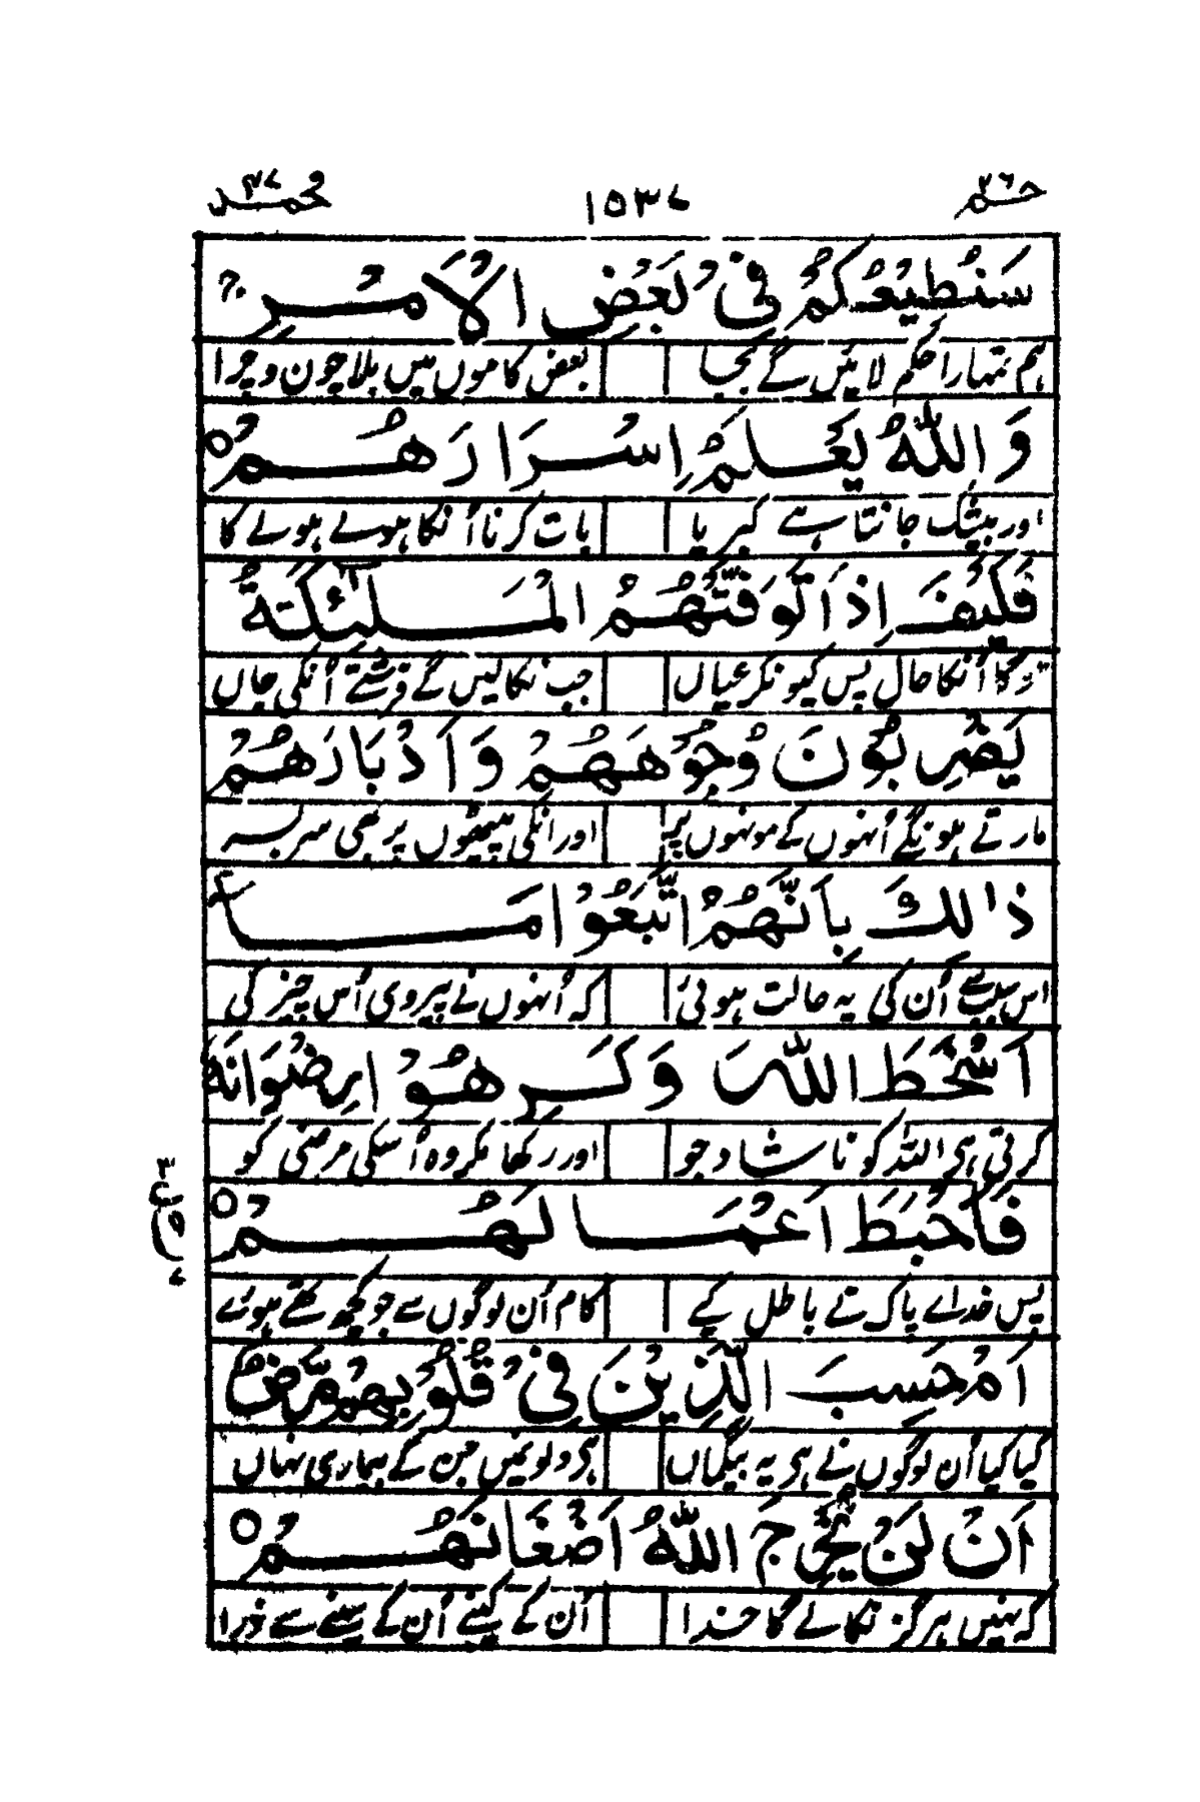 حٰم ٢٦ ١٥٣٧ محمد ٤٧
سَنُطِيعُكُمْ فِىْ بَعْضِ الْاَمْرِ ج
ہم تمہارا حکم لائیں گے بجا بعض کاموں میں بلا چون و چرا
وَاللّٰهُ يَعْلَمُ اِسْرَارَهُمْ ○
اور بیشک جانتا ہے کبریا بات کرنا اُنکا ہولے ہولے کا
فَكَيْفَ اِذَا تَوَفَّتْهُمُ الْمَلٰٓئِكَةُ
اُنکا حال پس کیونکر عیاں جب نکالیں گے فرشتے اُنکی جاں
يَضْرِبُوْنَ وُجُوْهَهُمْ وَاَدْبَارَهُمْ
مارتے ہونگے اُنہوں کے مونہوں پر اور انکی پیٹھوں پر بھی سربسر
ذٰلِكَ بِاَنَّهُمُ اتَّبَعُوْا مَا
اس سبب سے اُن کی یہ حالت ہوئی کہ اُنہوں نے پیروی اُس چیز کی
اَسْخَطَ اللّٰهَ وَكَرِهُوْا رِضْوَانَهٗ
کرتی ہی اللہ کو ناشاد جو اور رکھا مکروہ اُسکی مرضی کو
فَاَحْبَطَ اَعْمَالَهُمْ ○
پس خدائے پاک نے باطل کیے کام اُن لوگوں سے جو کچھ تھے ہوئے
اَمْ حَسِبَ الَّذِيْنَ فِىْ قُلُوْبِهِمْ مَّرَضٌ
کیا کیا اُن لوگوں نے ہی یہ بیگماں ہی دلونمیں جن کے بیماری نہاں
اَنْ لَّنْ يُّخْرِجَ اللّٰهُ اَضْغَانَهُمْ ○
کہ نہیں ہرگز نکالے گا خدا اُن کے کینے اُن کے سینے سے ذرا